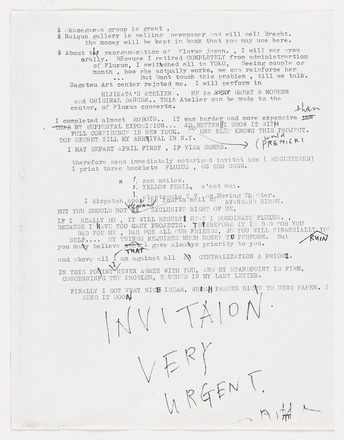 Akasegawa group in great.
Naiqua gallery is selling newspaper and will sell Brecht.
the money will be kept in bank that you may use here.
About the reorganization of Fluxus japan, I will say you
orally. BECAUSE I retired COMPLETELY from administration
of FLUXUS, I switched all to YOKO. Seeing couple or
month, how she actually works, we can reinforce her
... But Dont touch this problem, till we talk.
Sogetsu Art center rejected me. I will perform in
HIJIKATA'S ATELIER. HE is GREAT & MODERN
and ORIGINAL DANCER. THIS Atelier can be made to the
center, of Fluxus concerts.
I completed almost ROBOTS. IT was harder and more expensive than
MY WUPPERTAL EXPOSITION... AD BETTER SHOW IT WITH
FULL CONFIDENCY IN NEW YORK. NO ONE ELSE KNOWS THIS PROJECT.
TOP SECRET TILL MY ARRIVAL IN N.Y.
(PREMIER)
I MAY DEPART APRIL FIRST, IF VISA COMES.
therefore send immediately notorised invitation ( REGISTERED)
I print three booklets FLUXUS, GG GGG GGGG.
x 1. zen smiles.
2, YELLOW PERIL, c'est moi.
Electronic T V and Moving Theater.
I dispatch
AVANGARD HINDU.
BUT YOU SHOULD NOT EXCLUSIVE RIGHT OF ME,
IF I REALLY DO, IT WILL RESULT THAT I DOMINATE FLUXUS.
BECAUSE I HAVE TOO MANY PROJECTS. THEREFORE IT IS BAD FOR YOU
BAD FOR ME, BAD FOR ALL OUR FRIENDS, SO YOU WILL FINANCIALLY RUIN
SELF.... MY THINGS REQUIRED MUCH MONEY TO But
you may believe THAT I gave always priority to you.
and above all I am against all CENTRALIZATION A PRIORI.
IN THIS POINT NEVER AGREE WITH YOU, AND MY STANDPOINT IS FIRM,
CONCERNING THE PROBLEM, TOUCHED IN MY LAST LETTER.
FINALLY I GOT VERY NICE IDEA, WHICH PASSES NICE TO NEWS PAPER. I
SEND IT SOON
INVITAION.
VERY
URGENT.